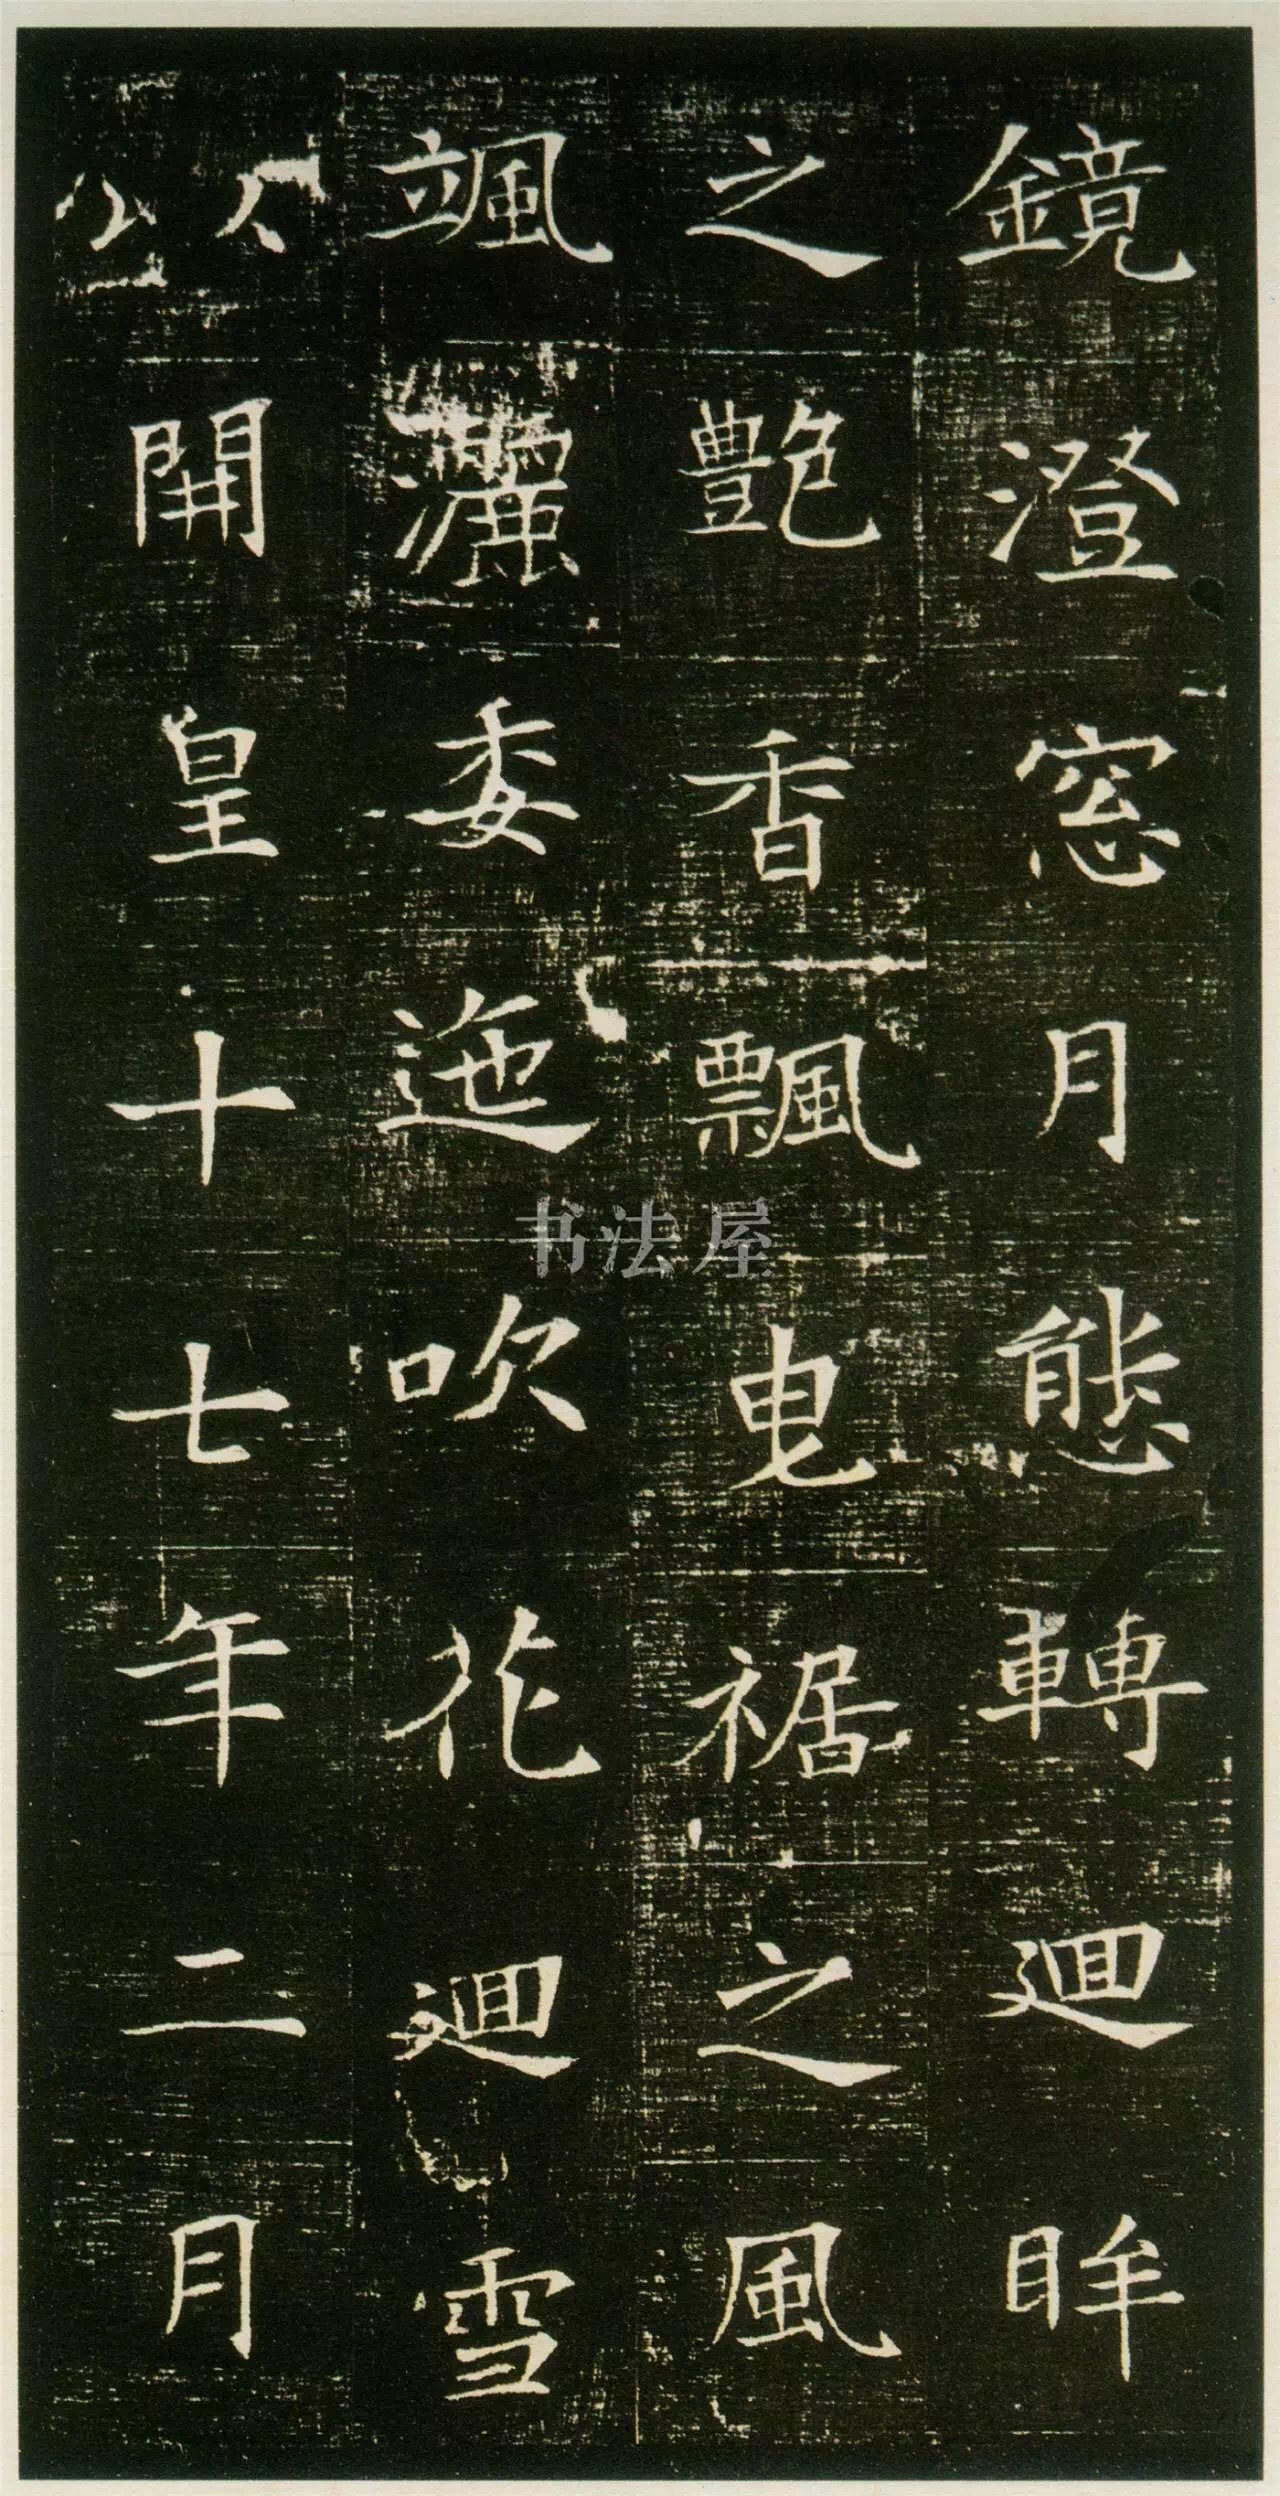 鏡澄窓月態轉廻眸
之艶香飄曳裾之風
颯灑委迤吹花廻雪
以開皇十七年二月
书法屋